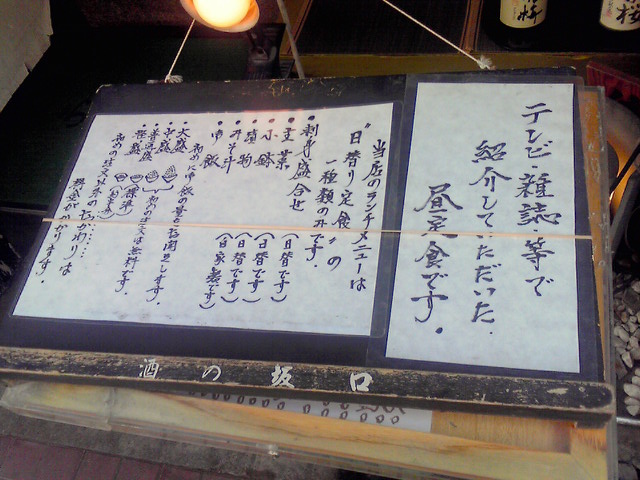 テレビ・雑誌・等で
紹介していただいた
昼定食です。
当店のランチメニューは
"日替り定食"の
一種類のみです。
・刺身盛合せ
・主菜 (日替です)
・小鉢 (日替です)
・漬物 (日替です)
・みそ汁 (自家製です)
・御飯
初めに御飯の量をお聞きします。
・大盛
・中盛
・普通盛
・軽盛
標準
初めの注文以外のおかわりは
料金がかかります。
酒の坂口